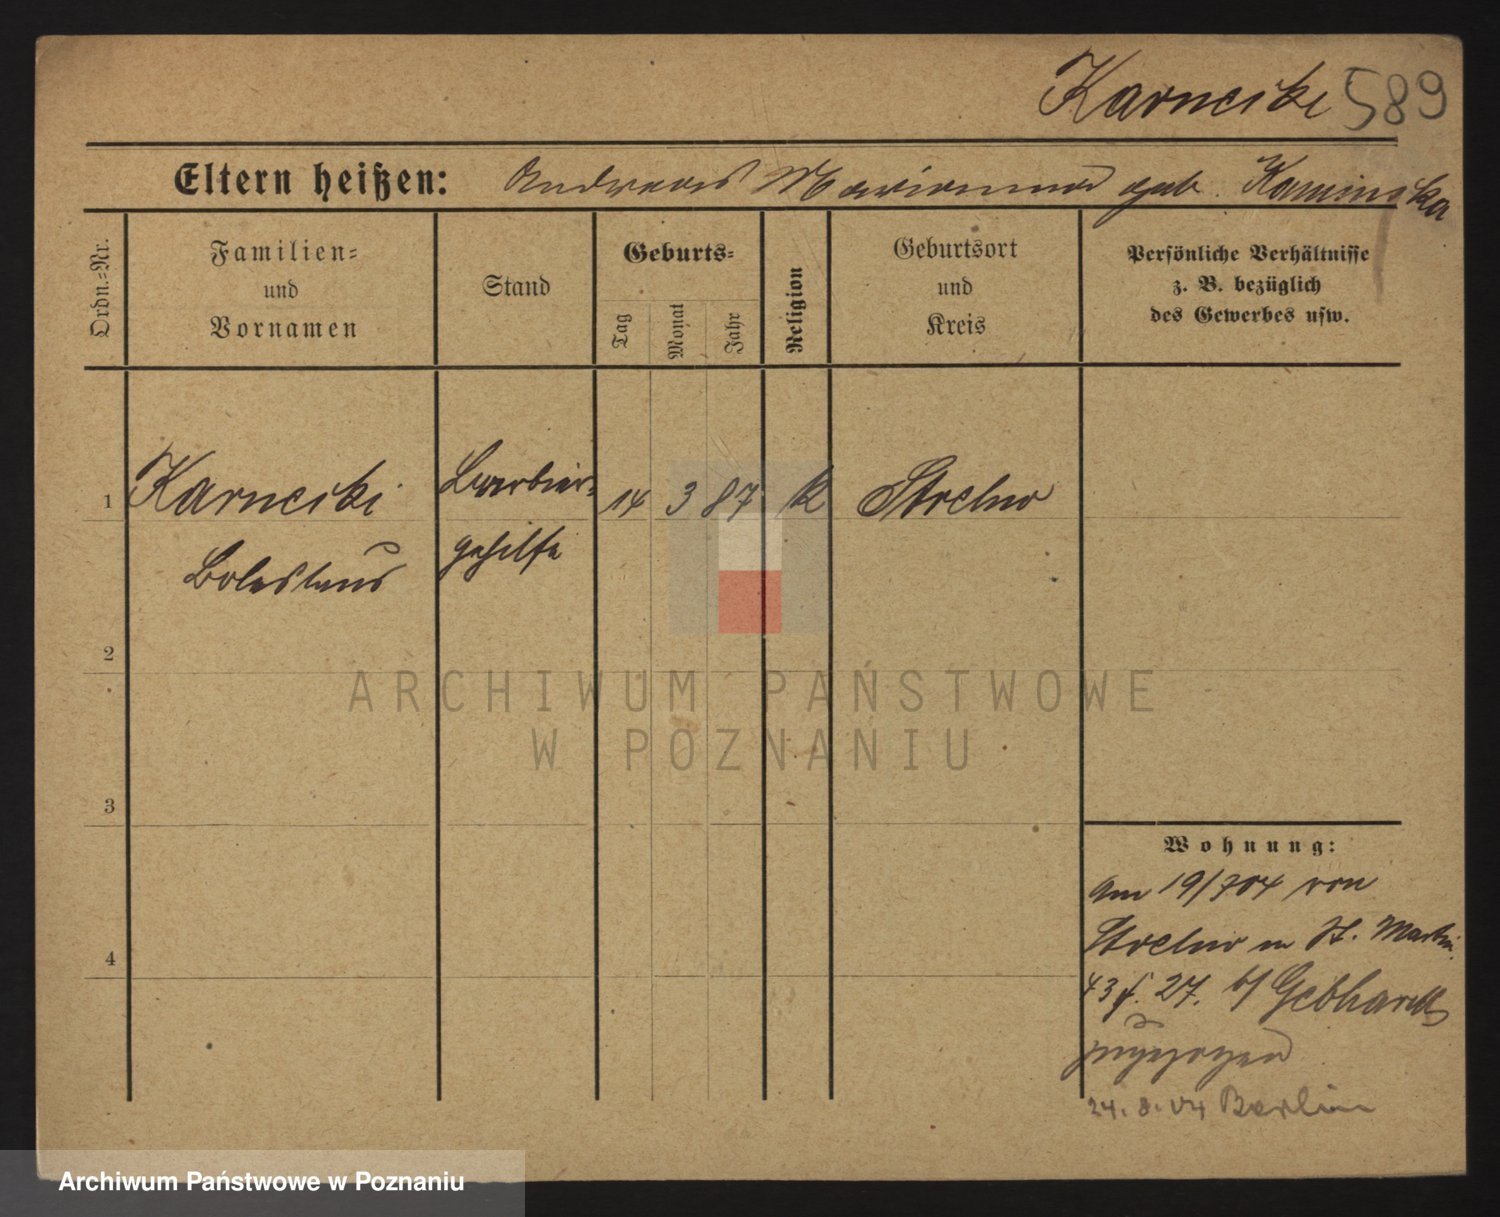 Karncski 589
Eltern heißen: Andreas Marianna geb. Kaminska
Ordn.-Nr.
Familien-
und
Vornamen
Stand
Geburts-
Tag
Monat
Jahr
Religion
Geburtsort
und
Kreis
Persönliche Verhältnisse
z. B. bezüglich
des Gewerbes usw.
1 Karncski Barbier- 14 3 87 K Strelno
Boleslaus gehilfe
2
ARCHIWUM PAŃSTWOWE
W POZNANIU
3
Wohnung:
am 19/7 04 von
Strelno n St. Martin
43 27. b/ Gebhardt
zugezogen
4
24. 8. 04 Berlin
Archiwum Państwowe w Poznaniu